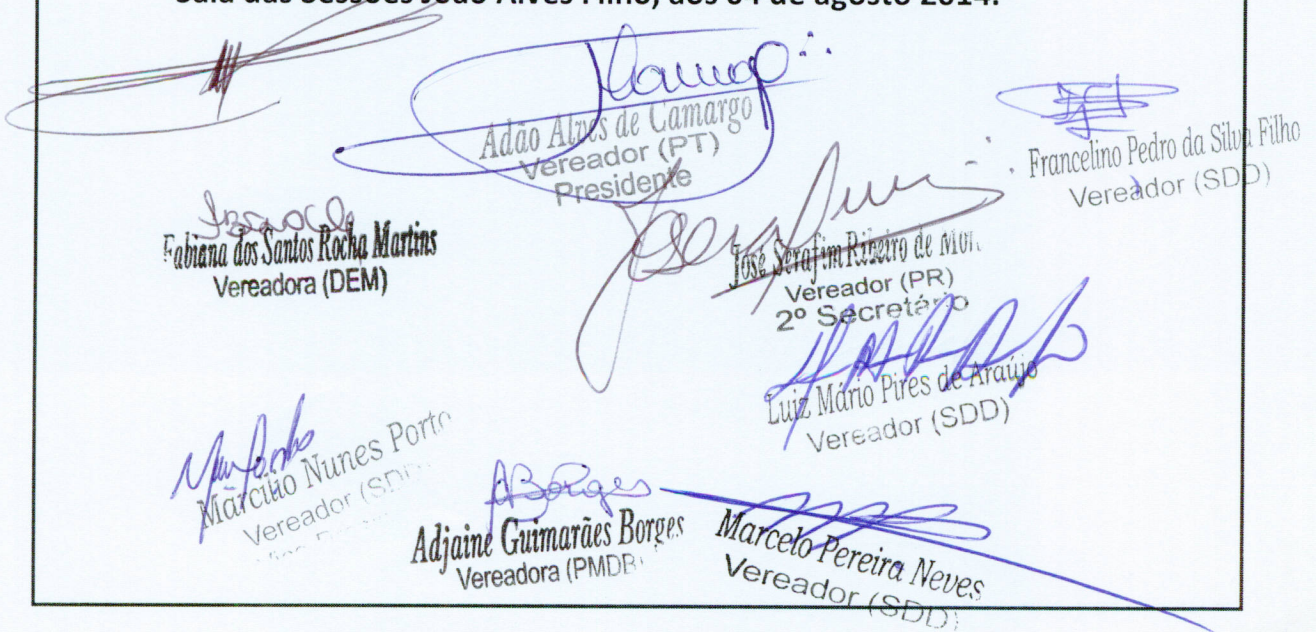 Sala das Sessões João Alves Filho, aos 04 de agosto 2014.
Adão Alves de Camargo
Vereador (PT)
Presidente
Francelino Pedro da Silva Filho
Vereador (SDD)
Fabiana dos Santos Rocha Martins
Vereadora (DEM)
José Serafim Ribeiro de
Vereador (PR)
2º Secretário
Luiz Mário Pires de Araújo
Vereador (SDD)
Marcilio Nunes Porto
Vereador (SDD)
ABorges
Adjaine Guimarães Borges
Vereadora (PMDB)
Marcelo Pereira Neves
Vereador (SDD)